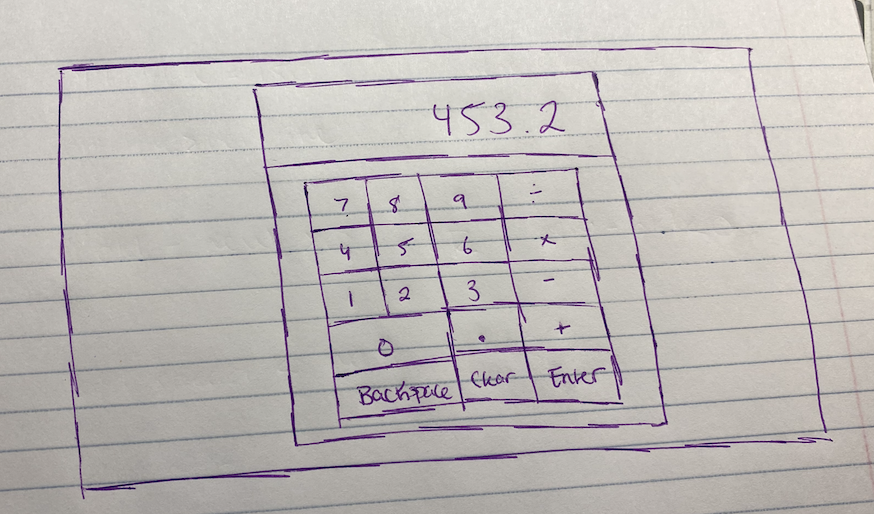 453.2
7 8 9 ÷
4 5 6 ×
1 2 3 -
0 . +
Backspace Clear Enter